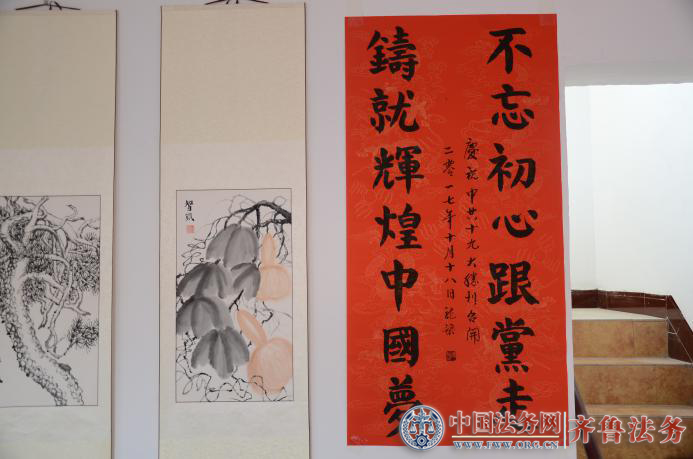 不忘初心跟黨走
慶祝中共十九大勝利召開
二零一七年十月十八日
鑄就輝煌中國夢
智凤
中国法务网
WWW.WWW.ORG.CN
齐鲁法务